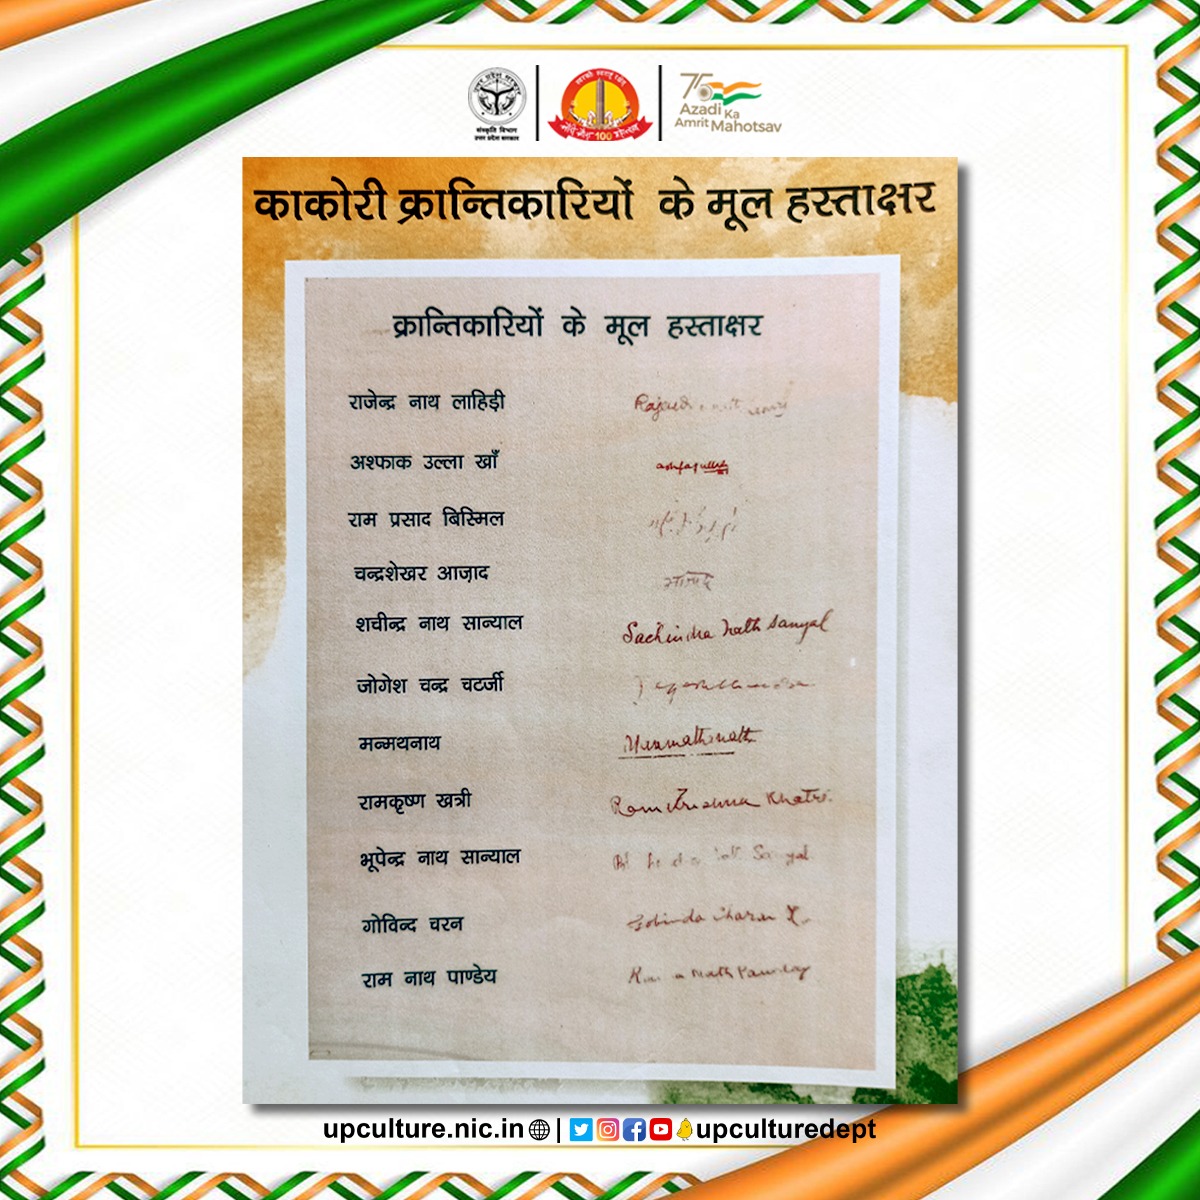 उत्तर प्रदेश सरकार
संस्कृति विभाग
उत्तर प्रदेश सरकार
75
Azadi Ka
Amrit Mahotsav
काकोरी क्रान्तिकारियों के मूल हस्ताक्षर
क्रान्तिकारियों के मूल हस्ताक्षर
राजेन्द्र नाथ लाहिड़ी
अश्फाक उल्ला खाँ ashfaqullah
राम प्रसाद बिस्मिल
चन्द्रशेखर आज़ाद आज़ाद
शचीन्द्र नाथ सान्याल Sachindra Nath Sanyal
जोगेश चन्द्र चटर्जी
मन्मथनाथ Manmathnath
रामकृष्ण खत्री Ram Krishna Khatri
भूपेन्द्र नाथ सान्याल Sanyal
गोविन्द चरन Gobinda Charan
राम नाथ पाण्डेय Nath Panday
upculture.nic.in | upculturedept